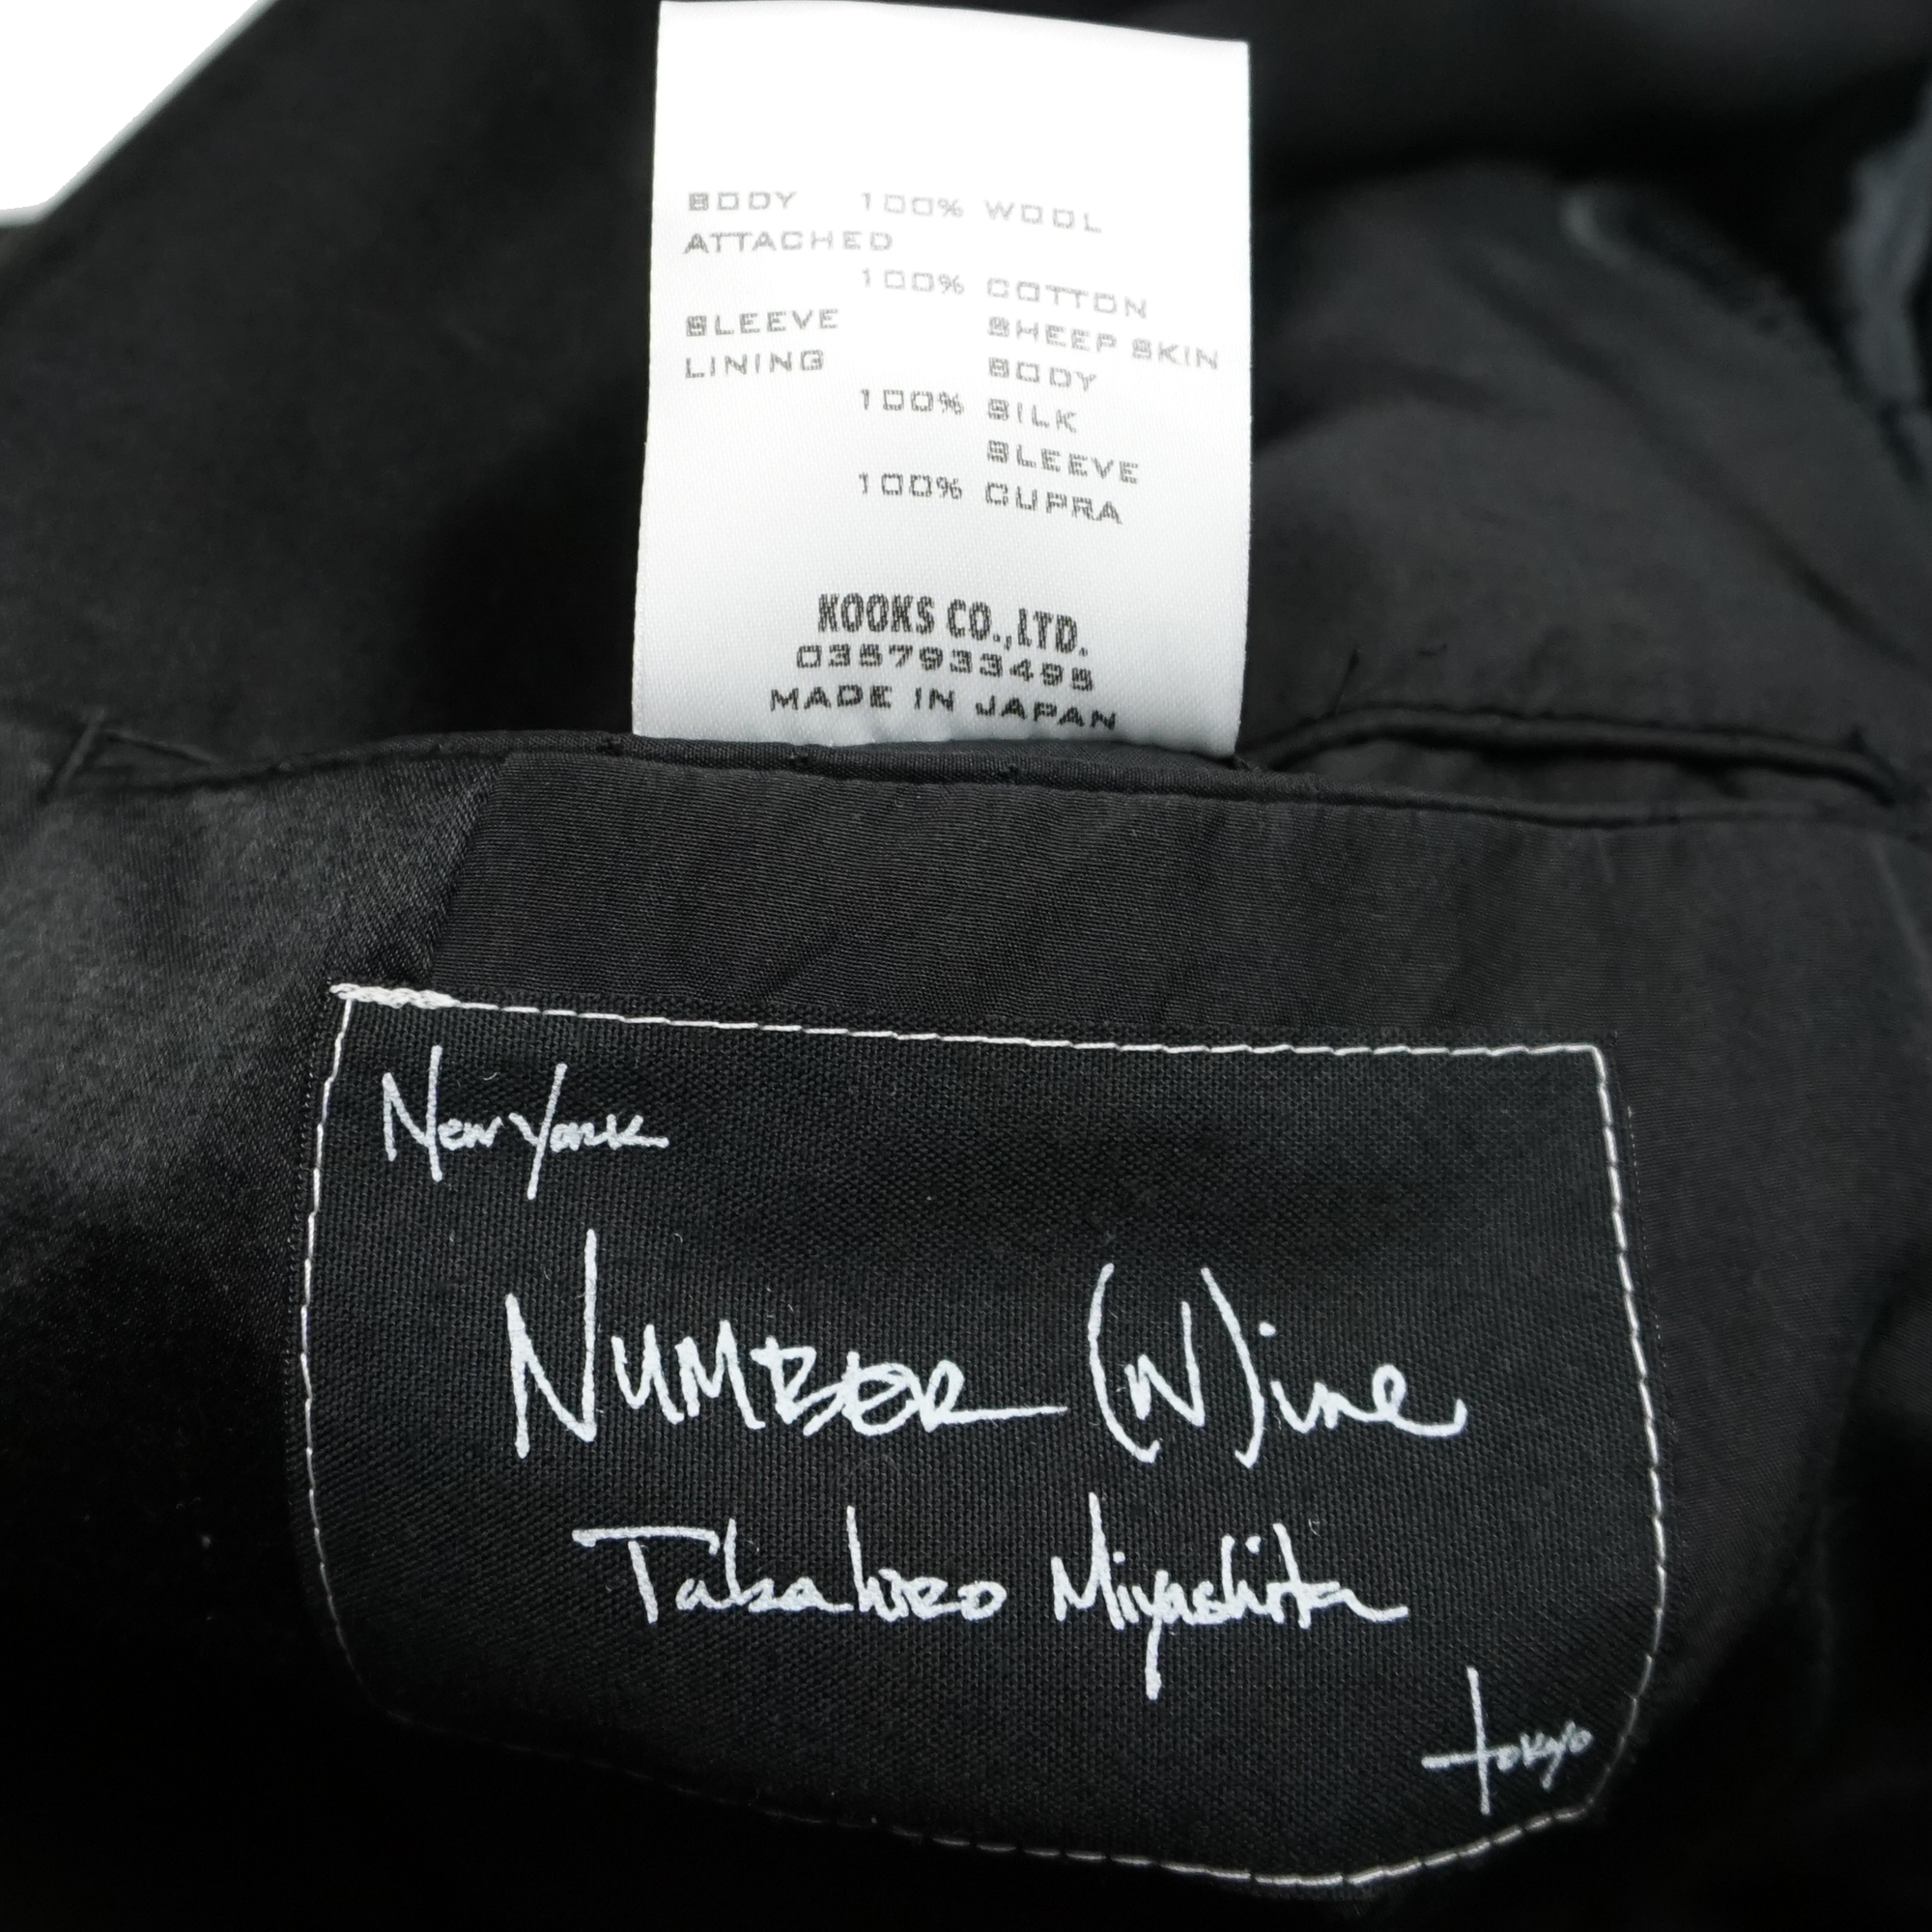 BODY 100% WOOL
ATTACHED
100% COTTON
SLEEVE SHEEP SKIN
LINING BODY
100% SILK
SLEEVE
100% CUPRA
KOOKS CO.,LTD.
0357933495
MADE IN JAPAN
New York
NUMBER (N)ine
Takahiro Miyashita
tokyo